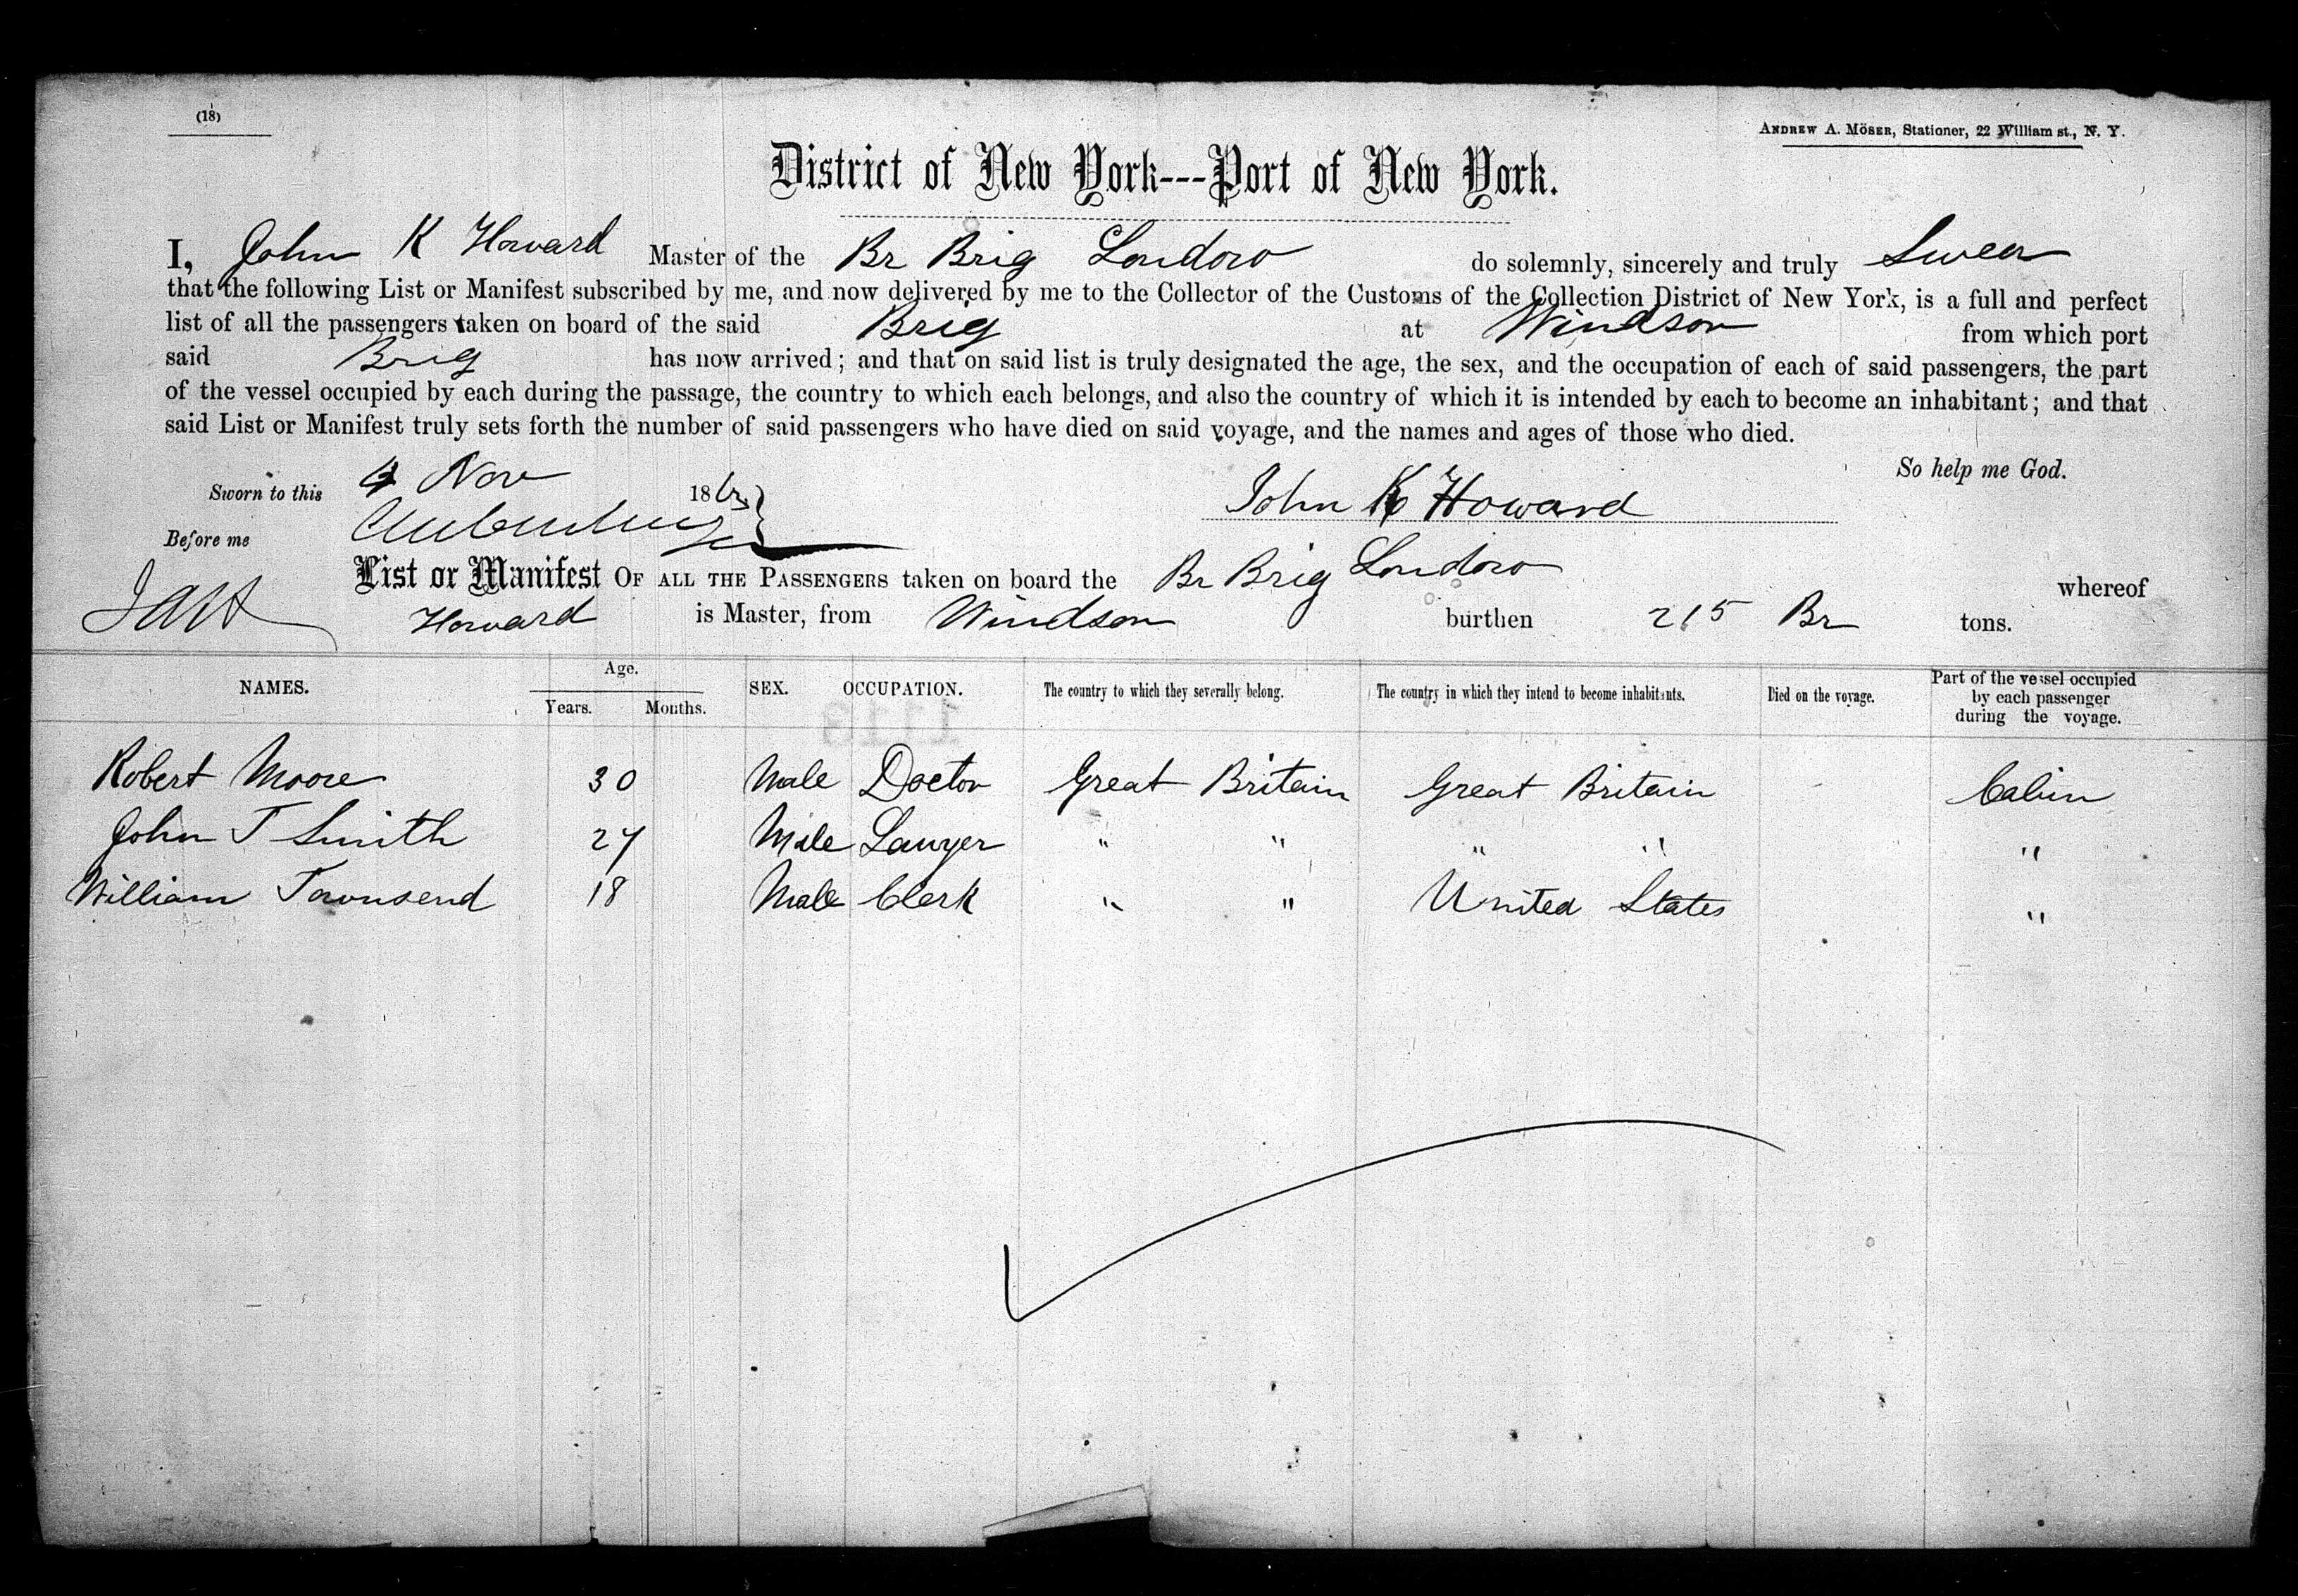 (18)
ANDREW A. MÖSER, Stationer, 22 William st., N. Y.
District of New York---Port of New York.
I, John K Howard Master of the Br Brig London do solemnly, sincerely and truly Swear
that the following List or Manifest subscribed by me, and now delivered by me to the Collector of the Customs of the Collection District of New York, is a full and perfect
list of all the passengers taken on board of the said Brig at Windsor from which port
said Brig has now arrived; and that on said list is truly designated the age, the sex, and the occupation of each of said passengers, the part
of the vessel occupied by each during the passage, the country to which each belongs, and also the country of which it is intended by each to become an inhabitant; and that
said List or Manifest truly sets forth the number of said passengers who have died on said voyage, and the names and ages of those who died.
So help me God.
Sworn to this 4 Nov 186
John K Howard
Before me
List or Manifest OF ALL THE PASSENGERS taken on board the Br Brig London whereof
Howard is Master, from Windsor burthen 215 Br tons.
NAMES. Age. Years. Months. SEX. OCCUPATION. The country to which they severally belong. The country in which they intend to become inhabitants. Died on the voyage. Part of the vessel occupied by each passenger during the voyage.
Robert Moore 30 Male Doctor Great Britain Great Britain Cabin
John T Smith 27 Male Lawyer " " " " "
William Townsend 18 Male Clerk " " United States "